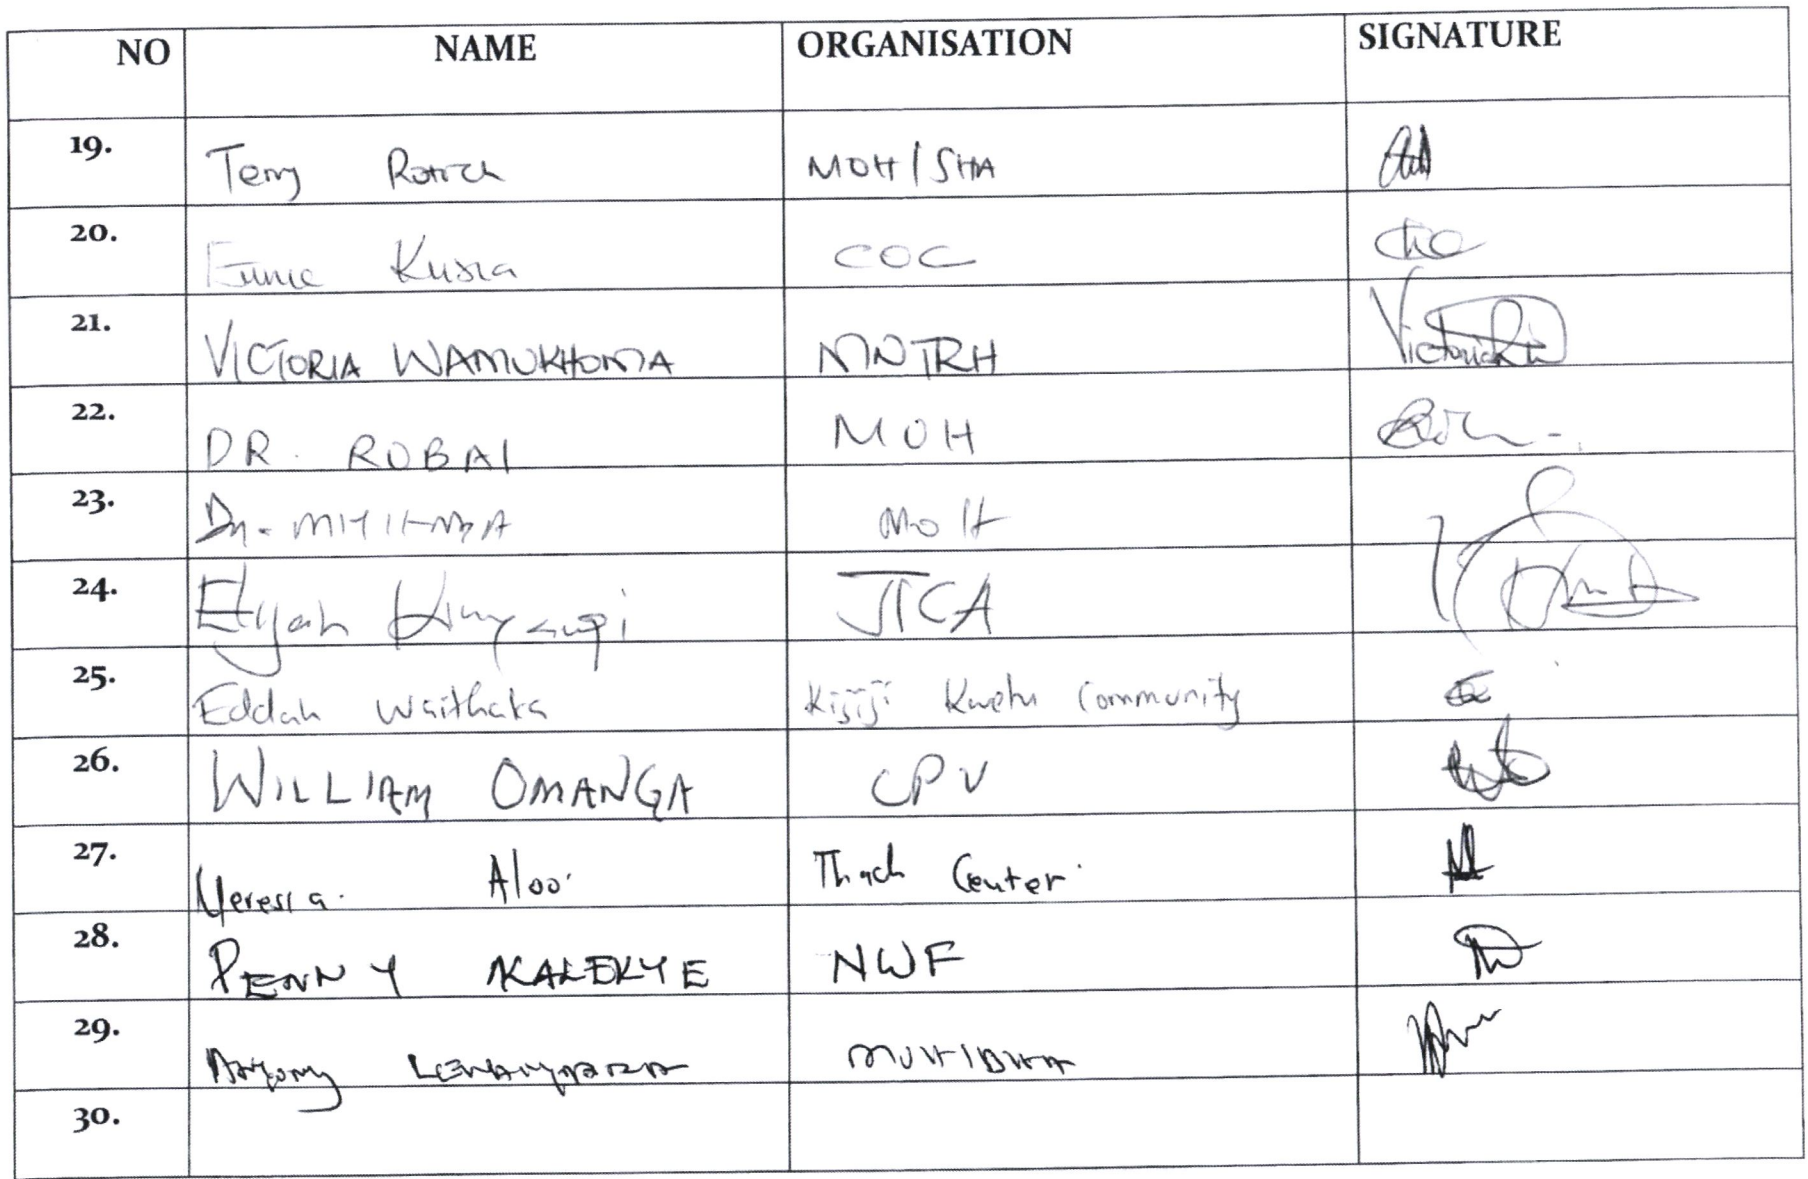 NO NAME ORGANISATION SIGNATURE
19. Terry Rotich MOH/SHA
20. Kusia COC
21. VICTORIA WAMUKHOMA MNTRH Victoria
22. DR. ROBAI MOH
23. Dr. MOH
24. Elijah Kinyangi JICA
25. Eddah Waithaka Kijiji Kwetu Community
26. WILLIAM OMANGA CPV
27. Aloo Center
28. PENNY KALEKYE NWF
29.
30.